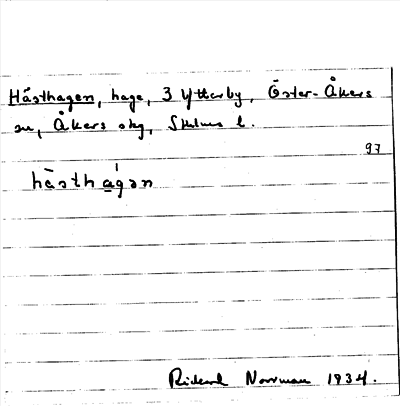 Hästhagen, hage, 3 Ytterby, Öster-Åkers
sn, Åkers skg, Sthlms l.
97
hàsthágən
Rickard Norrman 1934.